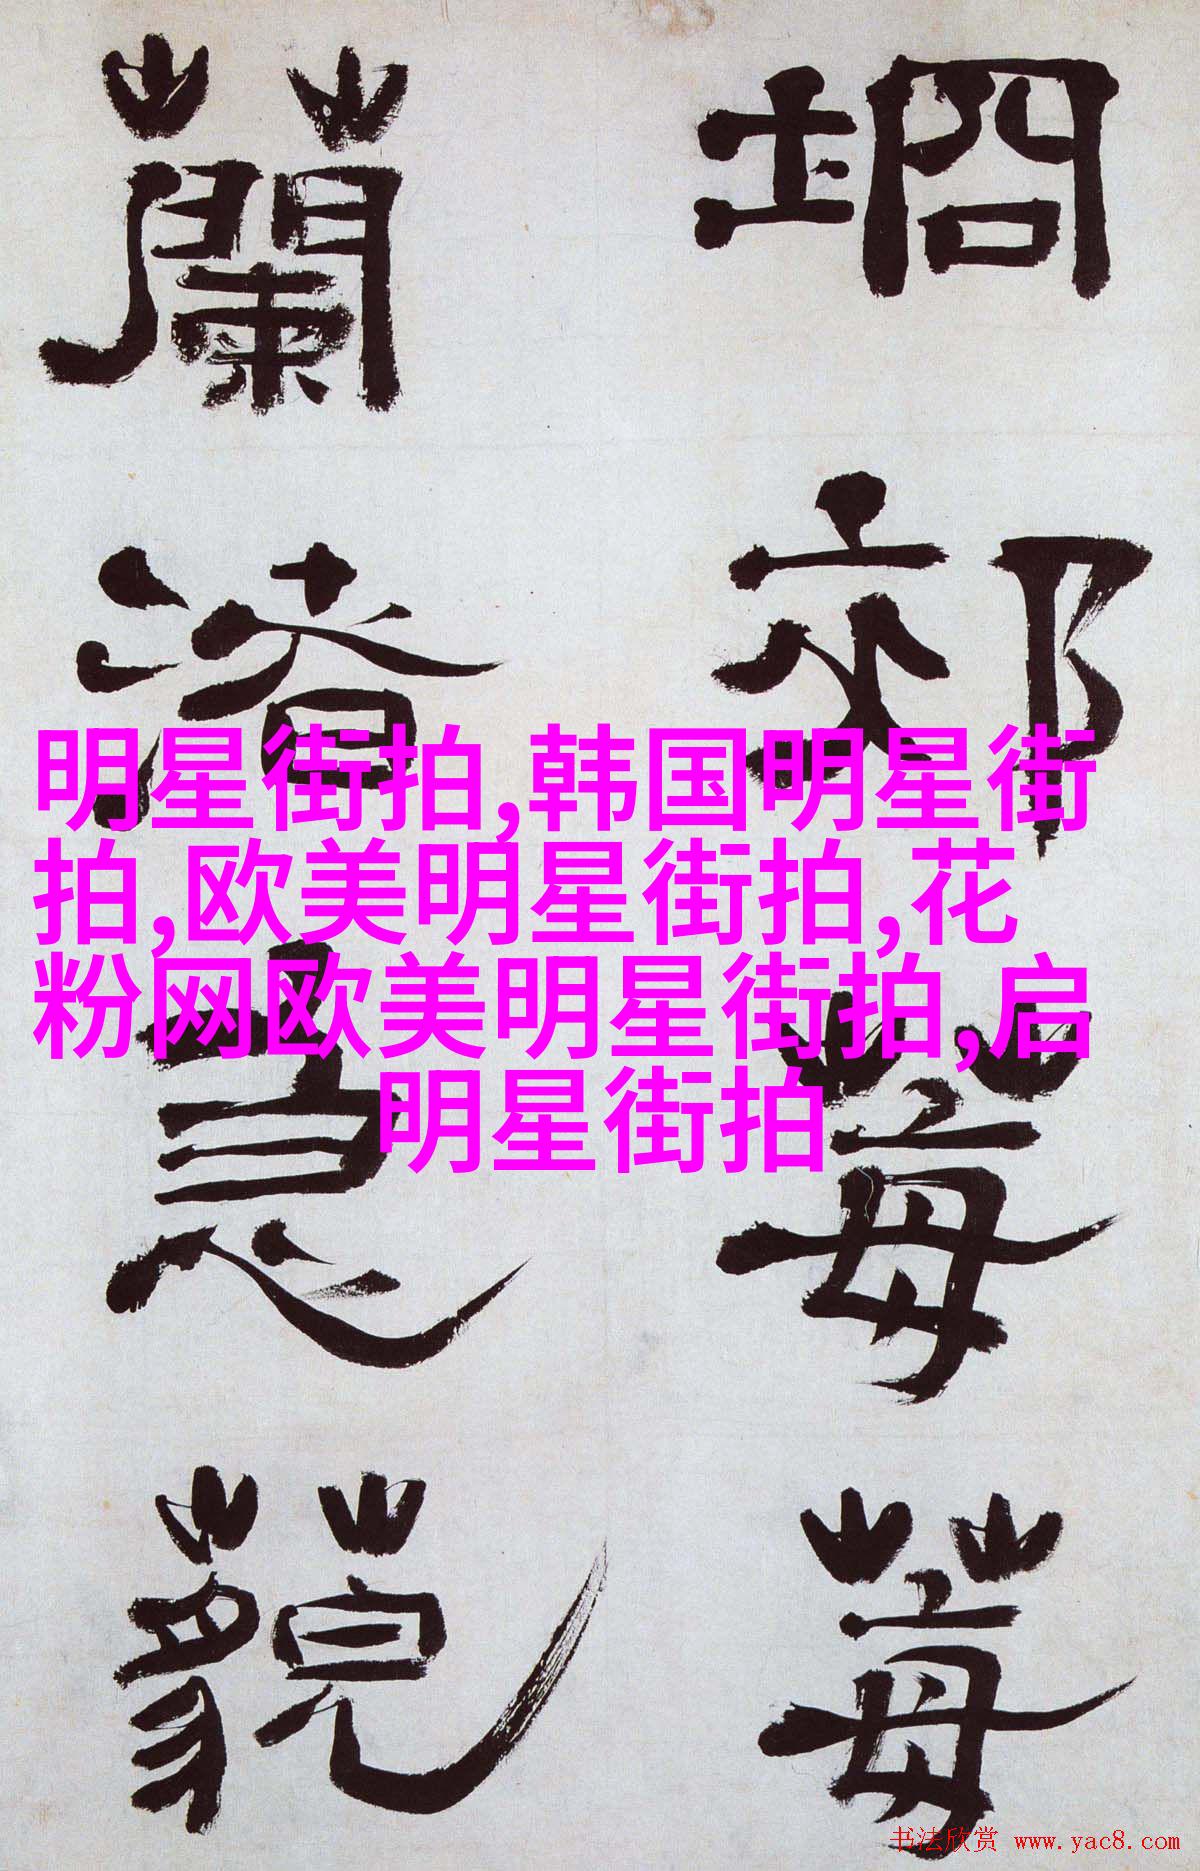 坰郊莓莓
蘭渚急藐
明星街拍,韩国明星街
拍,欧美明星街拍,花
粉网欧美明星街拍,启
明星街拍
书法欣赏 www.yac8.com